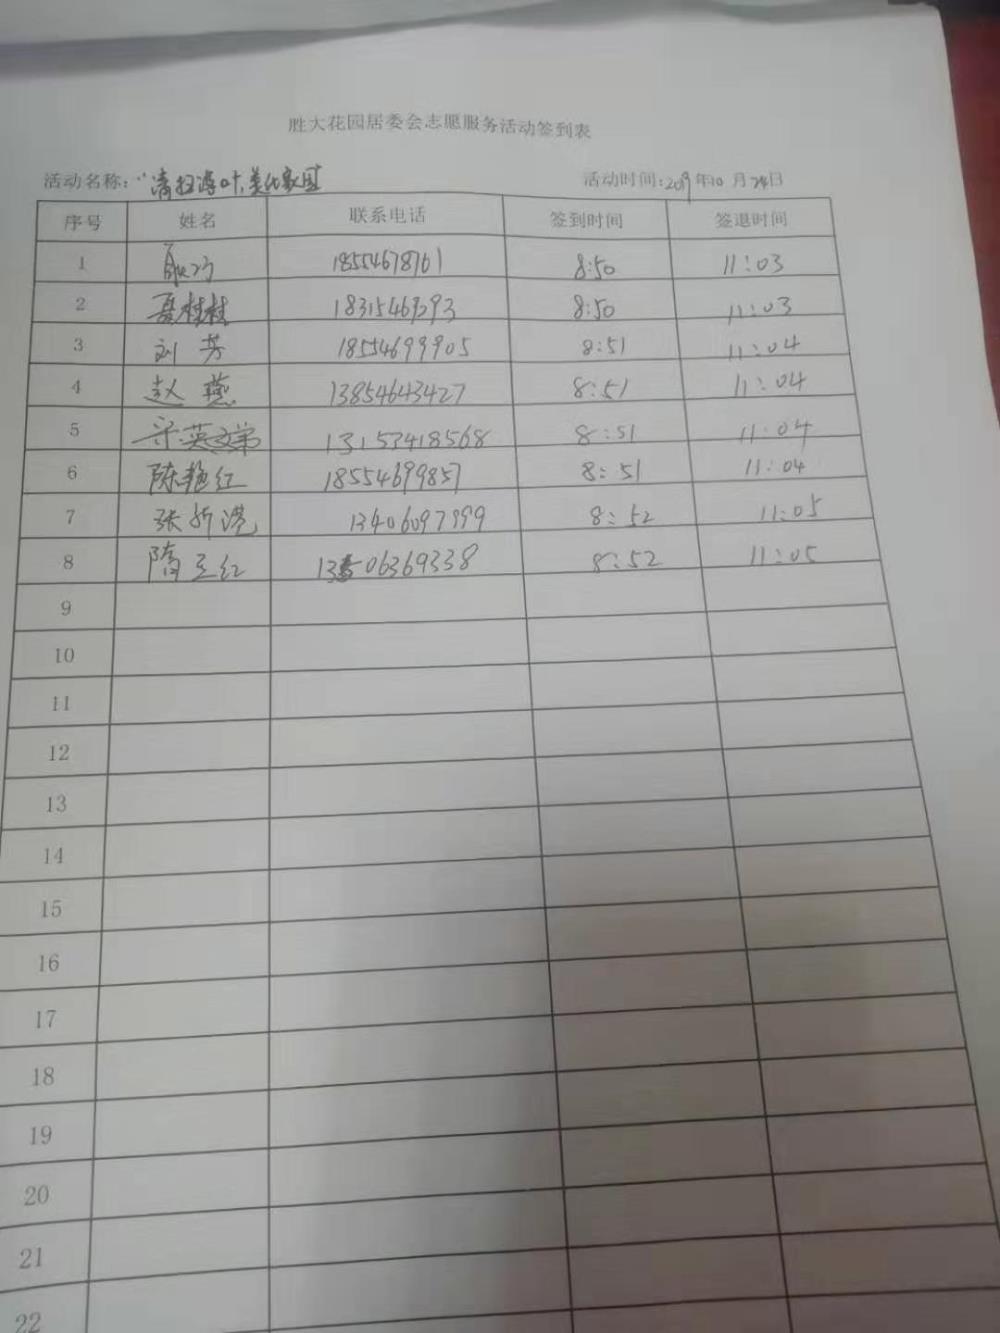 胜大花园居委会志愿服务活动签到表
活动名称：“清扫落叶,美化家园 活动时间：2019年10月24日
序号 姓名 联系电话 签到时间 签退时间
1 18554678761 8:50 11:03
2 聂桂桂 18315469393 8:50 11:03
3 刘芳 18554699905 8:51 11:04
4 赵燕 13854643427 8:51 11:04
5 13153418568 8:51 11:04
6 陈艳红 18554699857 8:51 11:04
7 张新港 13406097999 8:52 11:05
8 隋立红 06369338 8:52 11:05
9
10
11
12
13
14
15
16
17
18
19
20
21
22